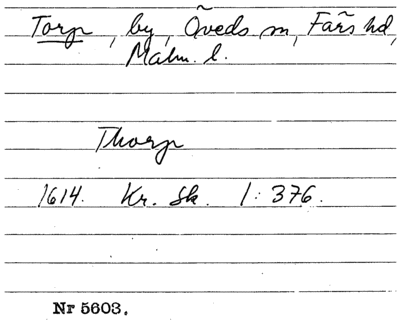 Torp, by, Öveds sn, Färs hd,
Malm. l.
Thorp
1614. Kr. Sk. 1:376.
Nr 5603.